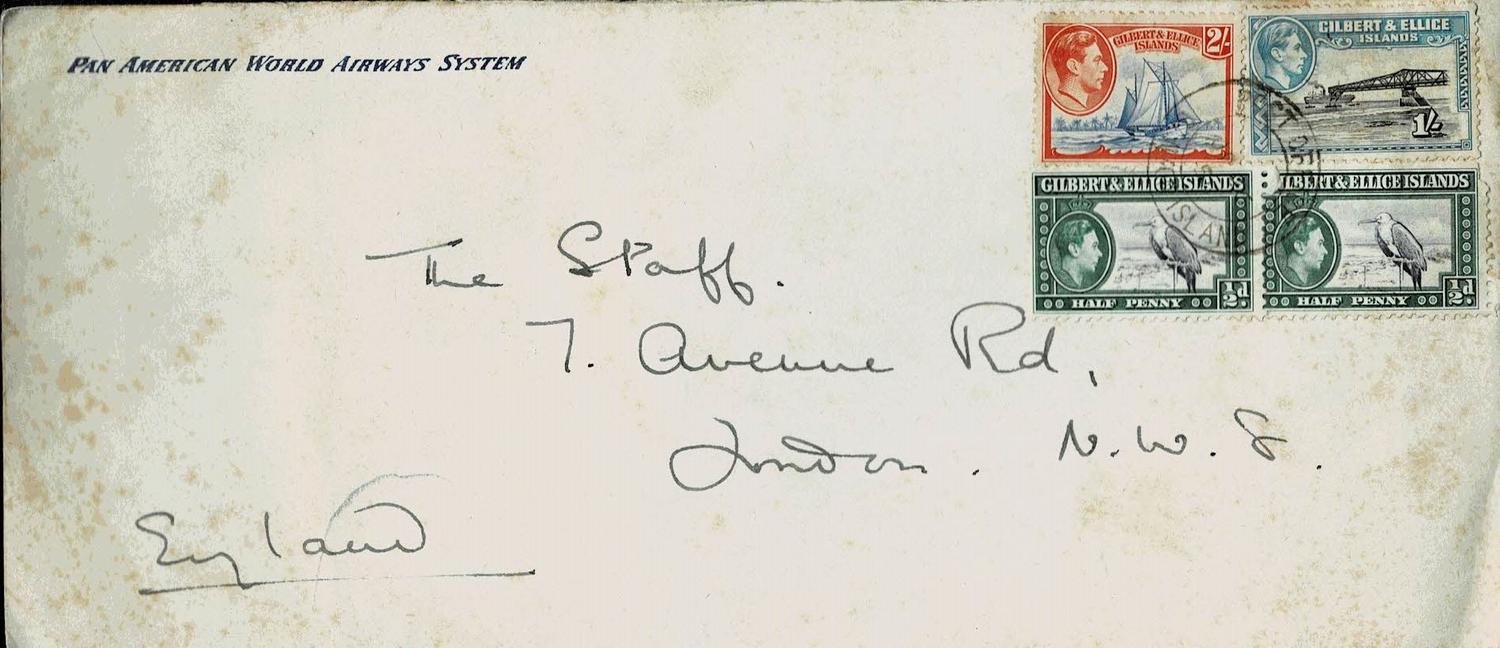 PAN AMERICAN WORLD AIRWAYS SYSTEM
GILBERT & ELLICE ISLANDS 2/-
GILBERT & ELLICE ISLANDS
1/-
GILBERT & ELLICE ISLANDS
HALF PENNY ½d.
LBERT & ELLICE ISLANDS
HALF PENNY ½d.
The Staff.
7. Avenue Rd,
London. N.W.8.
England